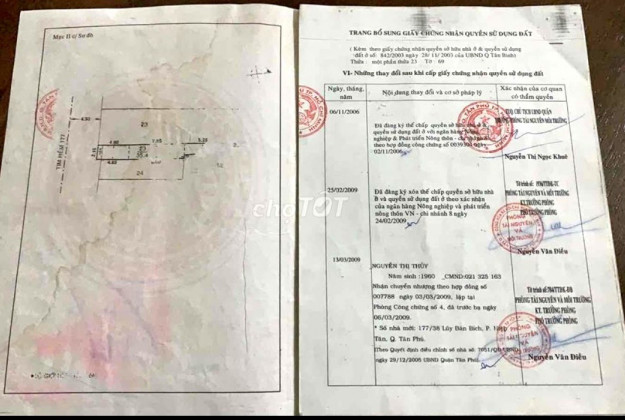 Mục II c/ Sơ đồ
4.50
23
5.23
24
chợTỐT
TRANG BỔ SUNG GIẤY CHỨNG NHẬN QUYỀN SỬ DỤNG ĐẤT
( Kèm theo giấy chứng nhận quyền sở hữu nhà ở & quyền sử dụng
đất ở số: 842/2003 ngày 28/ 11/ 2003 của UBND Q Tân Bình)
Thửa : một phần thửa 23 Tờ : 69
VI- Những thay đổi sau khi cấp giấy chứng nhận quyền sử dụng đất
Ngày, tháng, năm
Nội dung thay đổi và cơ sở pháp lý
Xác nhận của cơ quan có thẩm quyền
06/11/2006
Đã đăng ký thế chấp quyền sở hữu nhà ở &
quyền sử dụng đất ở với ngân hàng Nông
nghiệp & Phát triển Nông thôn
theo hợp đồng công chứng số
02/11/2006
CHỦ TỊCH UBND QUẬN
PHÒNG TÀI NGUYÊN MÔI TRƯỜNG
Nguyễn Thị Ngọc Khuê
25/02/2009
Đã đăng ký xóa thế chấp quyền sở hữu nhà
ở và quyền sử dụng đất ở theo xác nhận
của ngân hàng Nông nghiệp và phát triển
nông thôn VN - chi nhánh 8 ngày
24/02/2009
PHÒNG TÀI NGUYÊN VÀ MÔI TRƯỜNG
KT. TRƯỞNG PHÒNG
PHÓ TRƯỞNG PHÒNG
PHÒNG
TÀI NGUYÊN
VÀ
MÔI TRƯỜNG
Nguyễn Văn Điều
13/03/2009
NGUYỄN THỊ THỦY
Năm sinh :1960 ,CMND:021 325 163
Nhận chuyển nhượng theo hợp đồng số
007788 ngày 03/03/2009, lập tại
Phòng Công chứng số 4, đã trước bạ ngày
06/03/2009.
* Số nhà mới: 177/38 Lũy Bán Bích, P. Hiệp
Tân, Q. Tân Phú.
(Theo Quyết định điều chỉnh số nhà số:
ngày 29/12/2005 UBND Quận Tân Phú)
PHÒNG TÀI NGUYÊN VÀ MÔI TRƯỜNG
KT. TRƯỞNG PHÒNG
PHÓ TRƯỞNG PHÒNG
Nguyễn Văn Điều